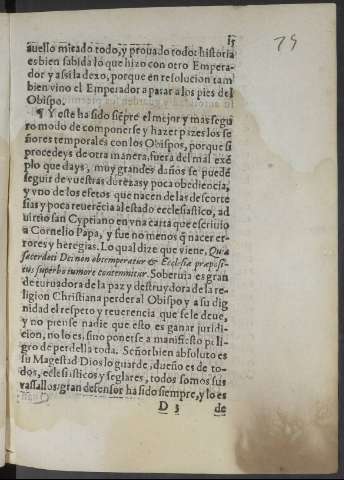 15
75
auello mirado todo, y prouado todo: historia
es bien sabida lo que hizo con otro Empera-
dor y assi la dexo, porque en resolucion tam
bien vino el Emperador a pasar a los pies del
Obispo.
¶ Y este ha sido siẽpre el mejor y mas segu
ro modo de componerse y hazer pazes los se
ñores temporales con los Obispos, porque si
procedeys de otra manera, fuera del mal exẽ
plo que days, muy grandes daños se puedẽ
seguir de vuestras durezas y poca obediencia,
y vno de los efetos que nacen de las descorte
sias y poca reuerẽcia al estado eclesiastico, ad
uirtio san Cypriano en vna carta que escriuio
a Cornelio Papa, y fue no menos q̃ nacer er-
rores y heregias. Lo qual dize que viene, Quia
sacerdoti Dei non obtemperatur & Ecclesiæ præposi-
tus superbo tumore contemnitur. Soberuia es gran
deturuadora de la paz y destruydora de la re-
ligion Christiana perder al Obispo y a su dig
nidad el respeto y reuerencia que se le deue,
y no piense nadie que esto es ganar juridi-
cion, no lo es, sino ponerse a manifiesto peli-
gro de perdella toda. Señor bien absoluto es
su Magestad Dios lo guarde, dueño es de to-
dos, eclesiasticos y seglares, todos somos sus
vassallos: gran defensor ha sido siempre, y lo es
D 3 de